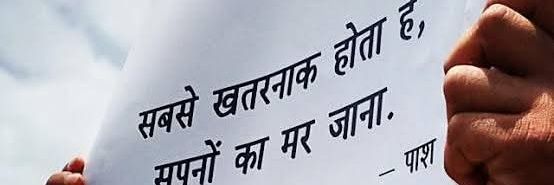 सबसे खतरनाक होता है,
सपनों का मर जाना.
– पाश